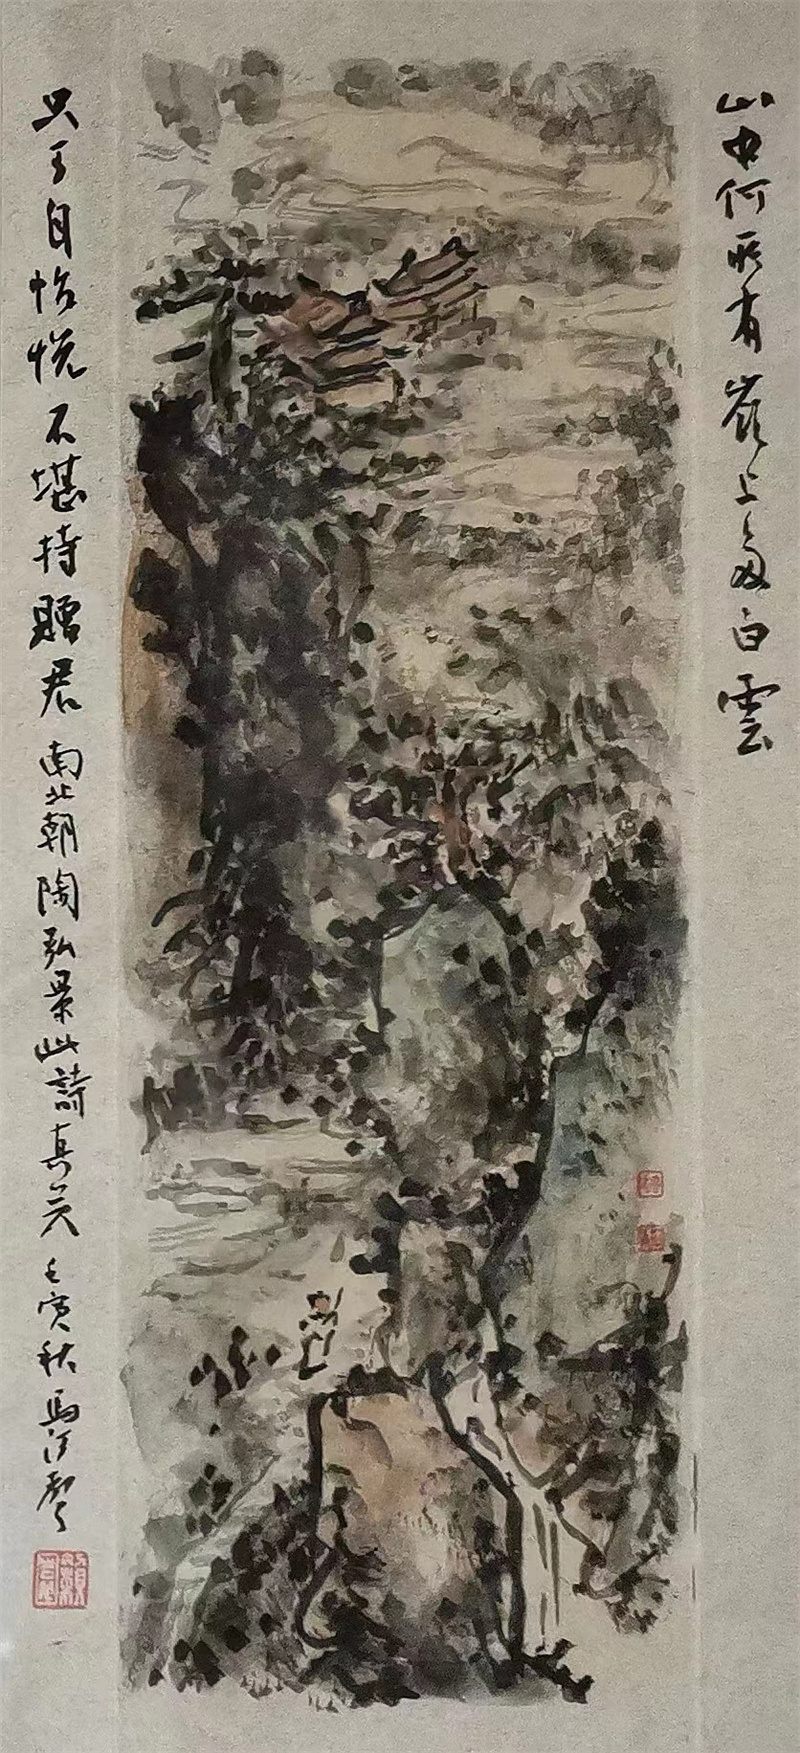 山中何所有嶺上多白雲
只可自怡悦不堪持贈君南北朝陶弘景此詩真美壬寅秋馬河聲